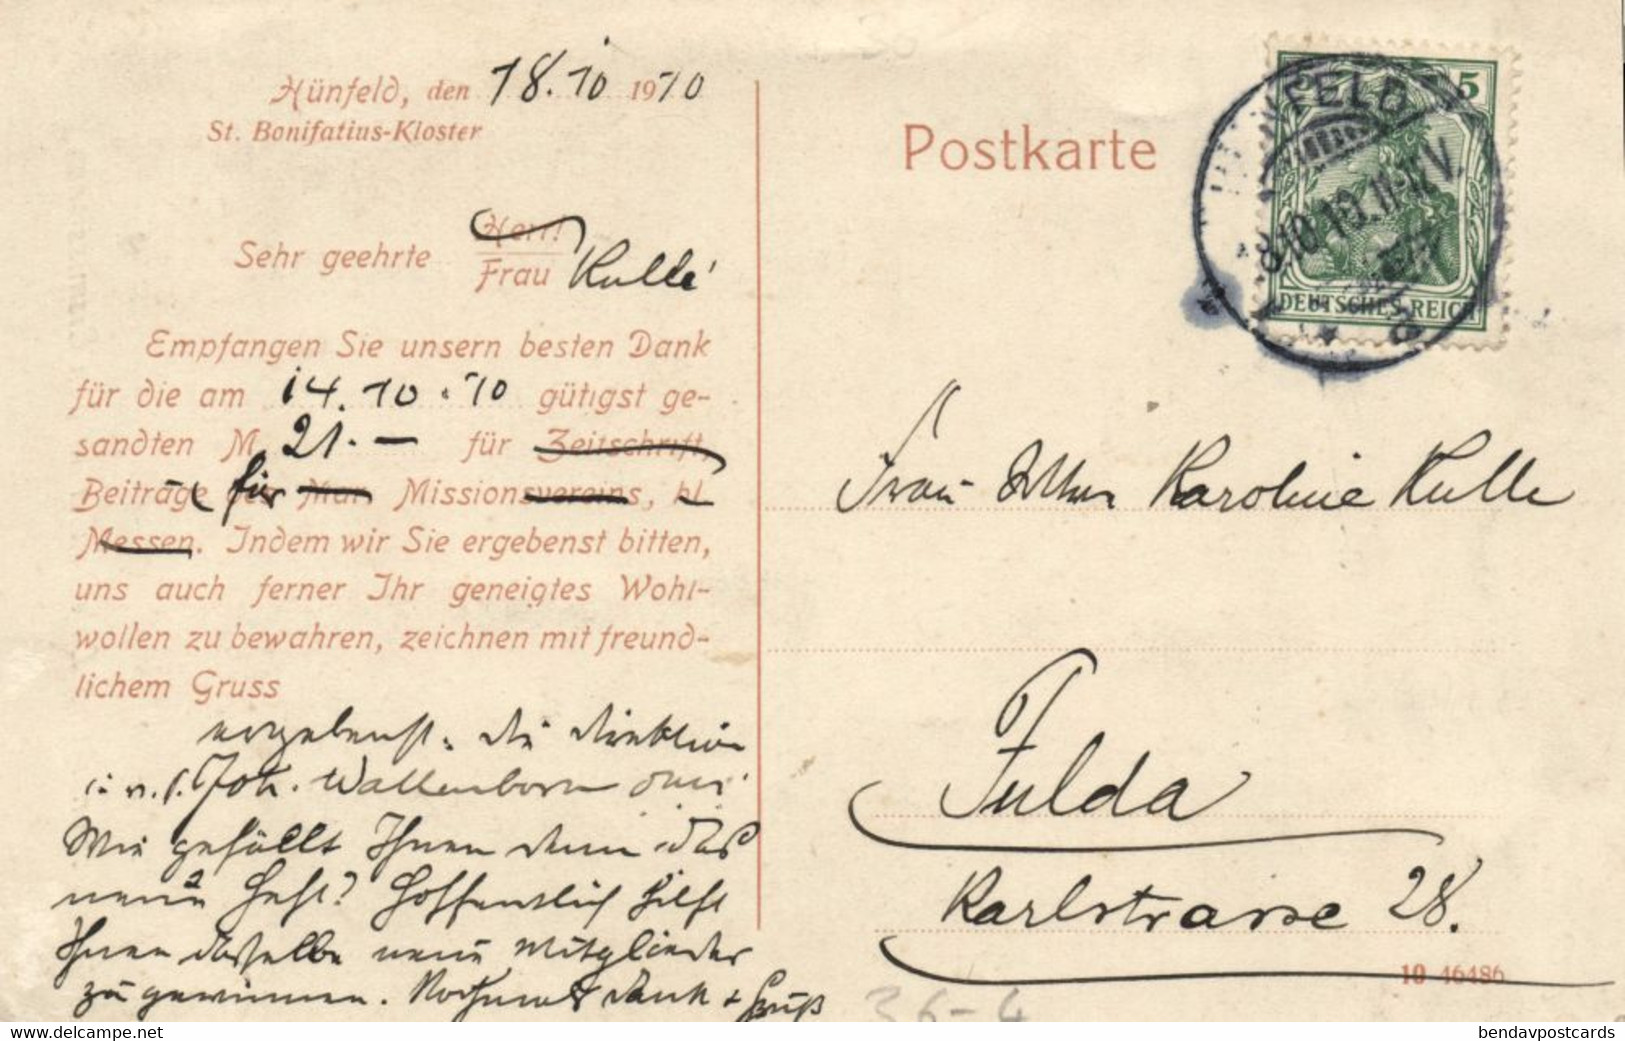 Hünfeld, den 18.10 1910
St. Bonifatius-Kloster
Sehr geehrte Herr!
Frau Kulle
Empfangen Sie unsern besten Dank
für die am 14.10.10 gütigst ge-
sandten M. 21.— für Zeitschrift,
Beiträge für Mar. Missionsvereins, hl.
Messen. Indem wir Sie ergebenst bitten,
uns auch ferner Ihr geneigtes Wohl-
wollen zu bewahren, zeichnen mit freund-
lichem Gruss
ergebenst. die Direktion
i. v. P. Joh. Wallenborn omi
Wie gefällt Ihnen denn das
neue Heft? Hoffentlich hilft
Ihnen dasselbe neue Mitglieder
zu gewinnen. Nochmals Dank + Gruß
Postkarte
5
DEUTSCHES REICH
HÜNFELD
18.10.10.11-12V.
Frau Karoline Kulle
Fulda
Karlstrasse 28.
10 46486
36-4
delcampe.net
bendavpostcards